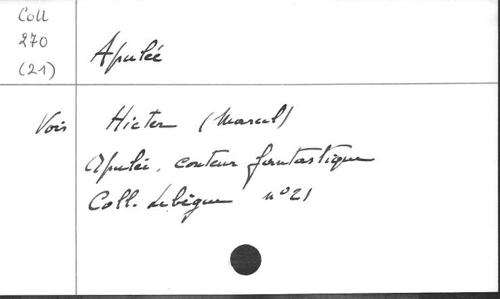 Coll
270
(21)
Apulée
Voir Hicter (Marcel)
Apulée, conteur fantastique
Coll. Lebègue n°21